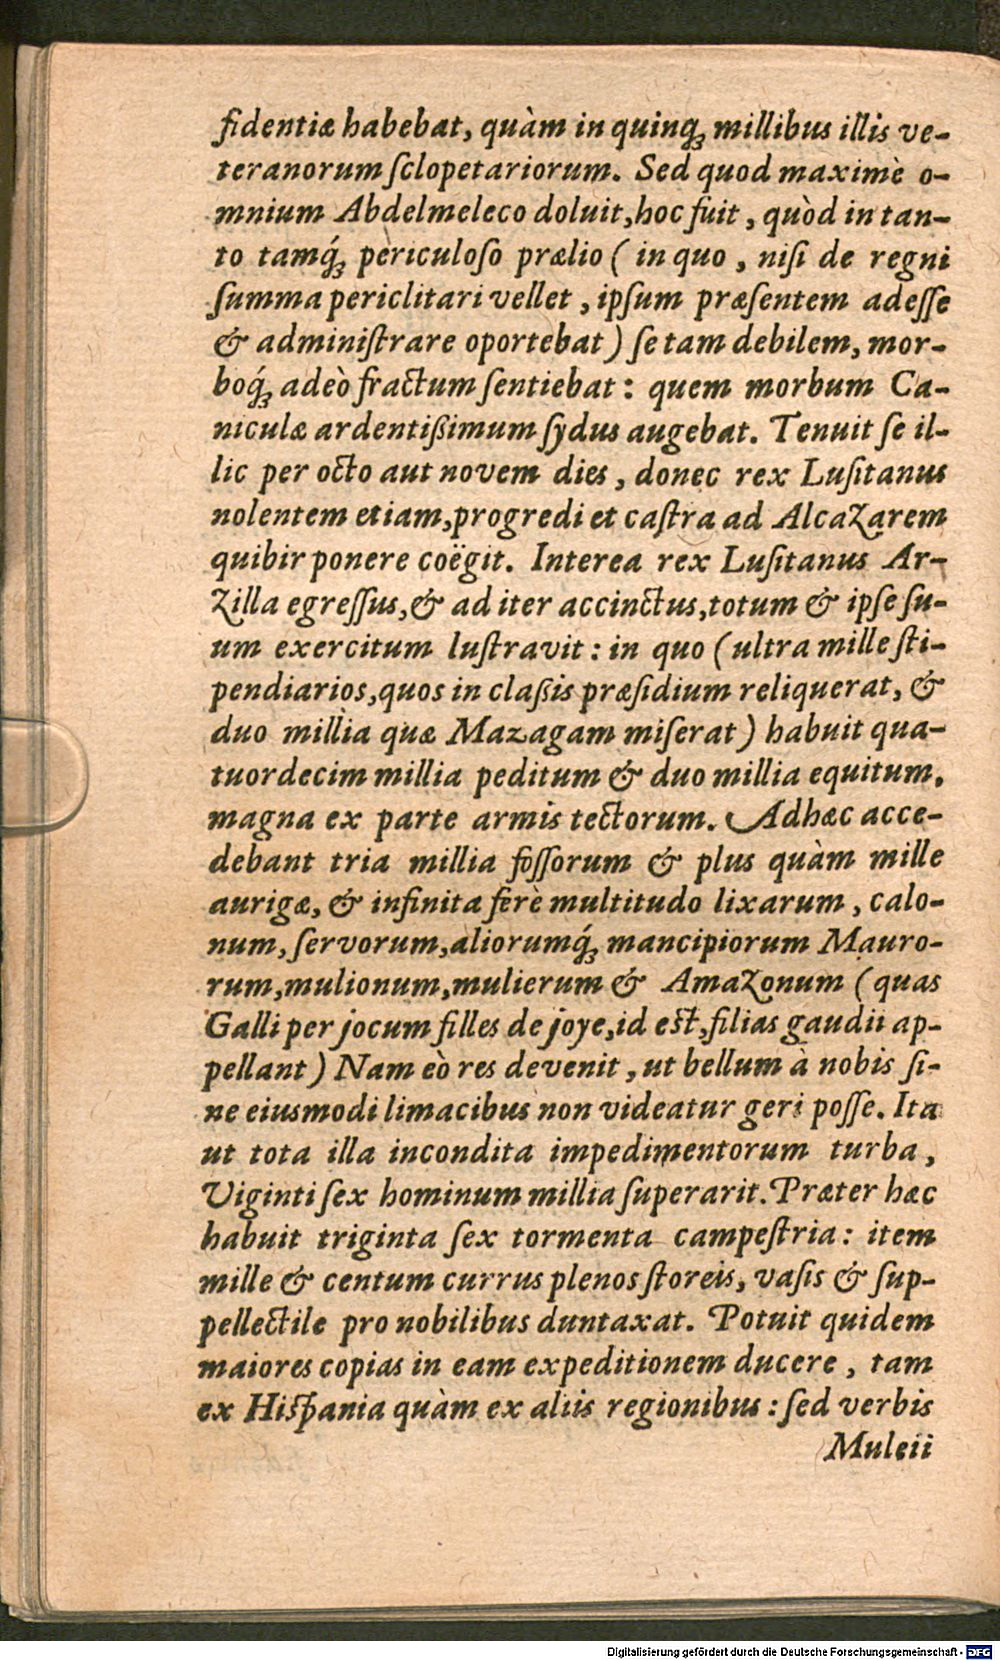 fidentiæ habebat, quàm in quinq́ꝫ millibus illis ve-
teranorum ſclopetariorum. Sed quod maximè o-
mnium Abdelmeleco doluit, hoc fuit, quòd in tan-
to tamq́ꝫ periculoſo prælio ( in quo, niſi de regni
ſumma periclitari vellet, ipſum præſentem adeſſe
& adminiſtrare oportebat ) ſe tam debilem, mor-
boq́ꝫ adeò fractum ſentiebat: quem morbum Ca-
niculæ ardentißimum ſydus augebat. Tenuit ſe il-
lic per octo aut novem dies, donec rex Luſitanus
nolentem etiam, progredi et caſtra ad Alcazarem
quibir ponere coëgit. Interea rex Luſitanus Ar-
zilla egreſſus, & ad iter accinctus, totum & ipſe ſu-
um exercitum luſtravit: in quo ( ultra mille ſti-
pendiarios, quos in claßis præſidium reliquerat, &
duo millia quæ Mazagam miſerat ) habuit qua-
tuordecim millia peditum & duo millia equitum,
magna ex parte armis tectorum. Adhæc acce-
debant tria millia foſſorum & plus quàm mille
aurigæ, & infinita ferè multitudo lixarum, calo-
num, ſervorum, aliorumq́ꝫ mancipiorum Mauro-
rum, mulionum, mulierum & Amazonum ( quas
Galli per jocum filles de joye, id eſt, filias gaudii ap-
pellant ) Nam eò res devenit, ut bellum à nobis ſi-
ne eiusmodi limacibus non videatur geri poſſe. Ita
ut tota illa incondita impedimentorum turba,
Viginti ſex hominum millia ſuperarit. Præter hæc
habuit triginta ſex tormenta campeſtria: item
mille & centum currus plenos ſtoreis, vaſis & ſup-
pellectile pro nobilibus duntaxat. Potuit quidem
maiores copias in eam expeditionem ducere, tam
ex Hiſpania quàm ex aliis regionibus: ſed verbis
Muleii
Digitalisierung gefördert durch die Deutsche Forschungsgemeinschaft - DFG